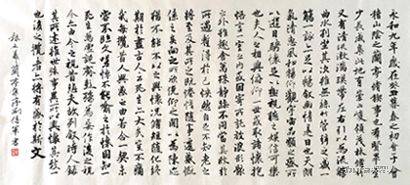 永和九年歲在癸丑暮春之初會于會
稽山陰之蘭亭脩稧事也群賢畢至
少長咸集此地有崇山峻領茂林脩竹
又有清流激湍暎帶左右引以為流觴
曲水列坐其次雖無絲竹管弦之盛一
觴一詠亦足以暢敘幽情是日也天朗
氣清惠風和暢仰觀宇宙之大俯察品類之盛所
以遊目騁懷足以極視聽之娛信可樂
也夫人之相與俯仰一世或取諸懷抱
悟言一室之內或因寄所託放浪形骸
之外雖趣舍萬殊靜躁不同當其欣於
所遇暫得於己快然自足不知老之將
至及其所之既倦情隨事遷感慨
係之矣向之所欣俛仰之間以為陳迹
猶不能不以之興懷況脩短隨化終
期於盡古人云死生亦大矣豈不痛
哉每攬昔人興感之由若合一契未
嘗不臨文嗟悼不能喻之於懷固知一
死生為虛誕齊彭殤為妄作後之視
今亦由今之視昔悲夫故列敘時人錄
其所述雖世殊事異所以興懷其致一
也後之攬者亦將有感於斯文
蘭亭集序 書